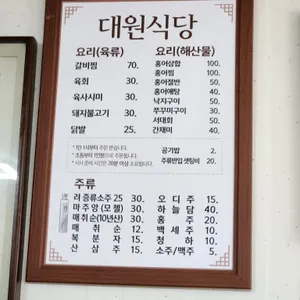 대원식당
요리(육류)
갈비찜 70.
육회 30.
육사시미 30.
돼지불고기 30.
닭발 25.
요리(해산물)
홍어삼합 100.
홍어찜 100.
홍어절반 50.
홍어애탕 40.
낙지구이 50.
쭈꾸미구이 30.
서대회 50.
간재미 40.
공기밥 2.
주류반입 셋팅비 20.
주류
려 증류소주 25 30.
마 주 앙 (모 젤) 30.
매취순(10년산) 30.
매 취 순 12.
복 분 자 15.
산 삼 주 15.
오 디 주 15.
하 늘 담 40.
홍 주 20.
백 세 주 10.
청 하 10.
소주/맥주 5.